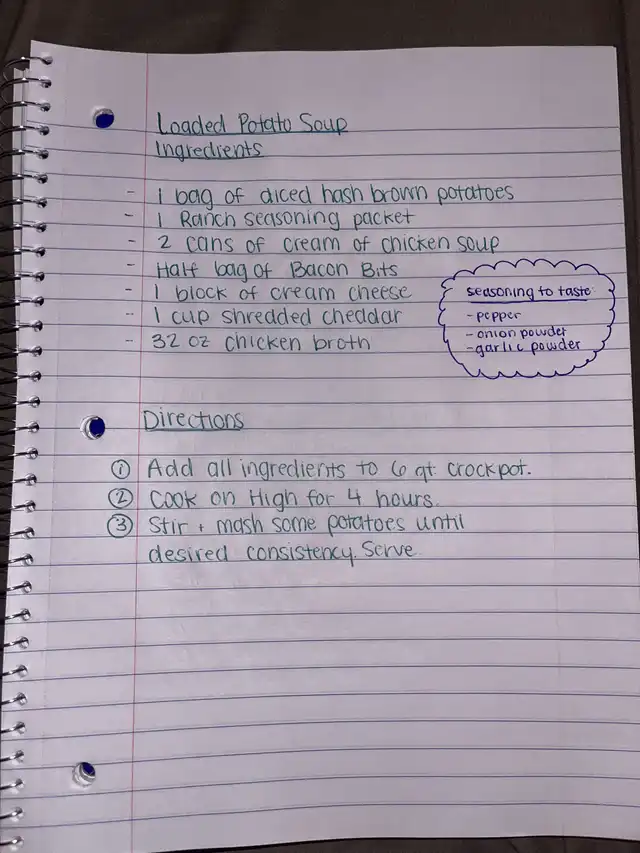 Loaded Potato Soup
Ingredients
- 1 bag of diced hash brown potatoes
- 1 Ranch seasoning packet
- 2 cans of cream of chicken soup
- Half bag of Bacon Bits
- 1 block of cream cheese
- 1 cup shredded cheddar
- 32 oz chicken broth
seasoning to taste:
- pepper
- onion powder
- garlic powder
Directions
① Add all ingredients to 6 qt crockpot.
② Cook on High for 4 hours.
③ Stir + mash some potatoes until
desired consistency. Serve